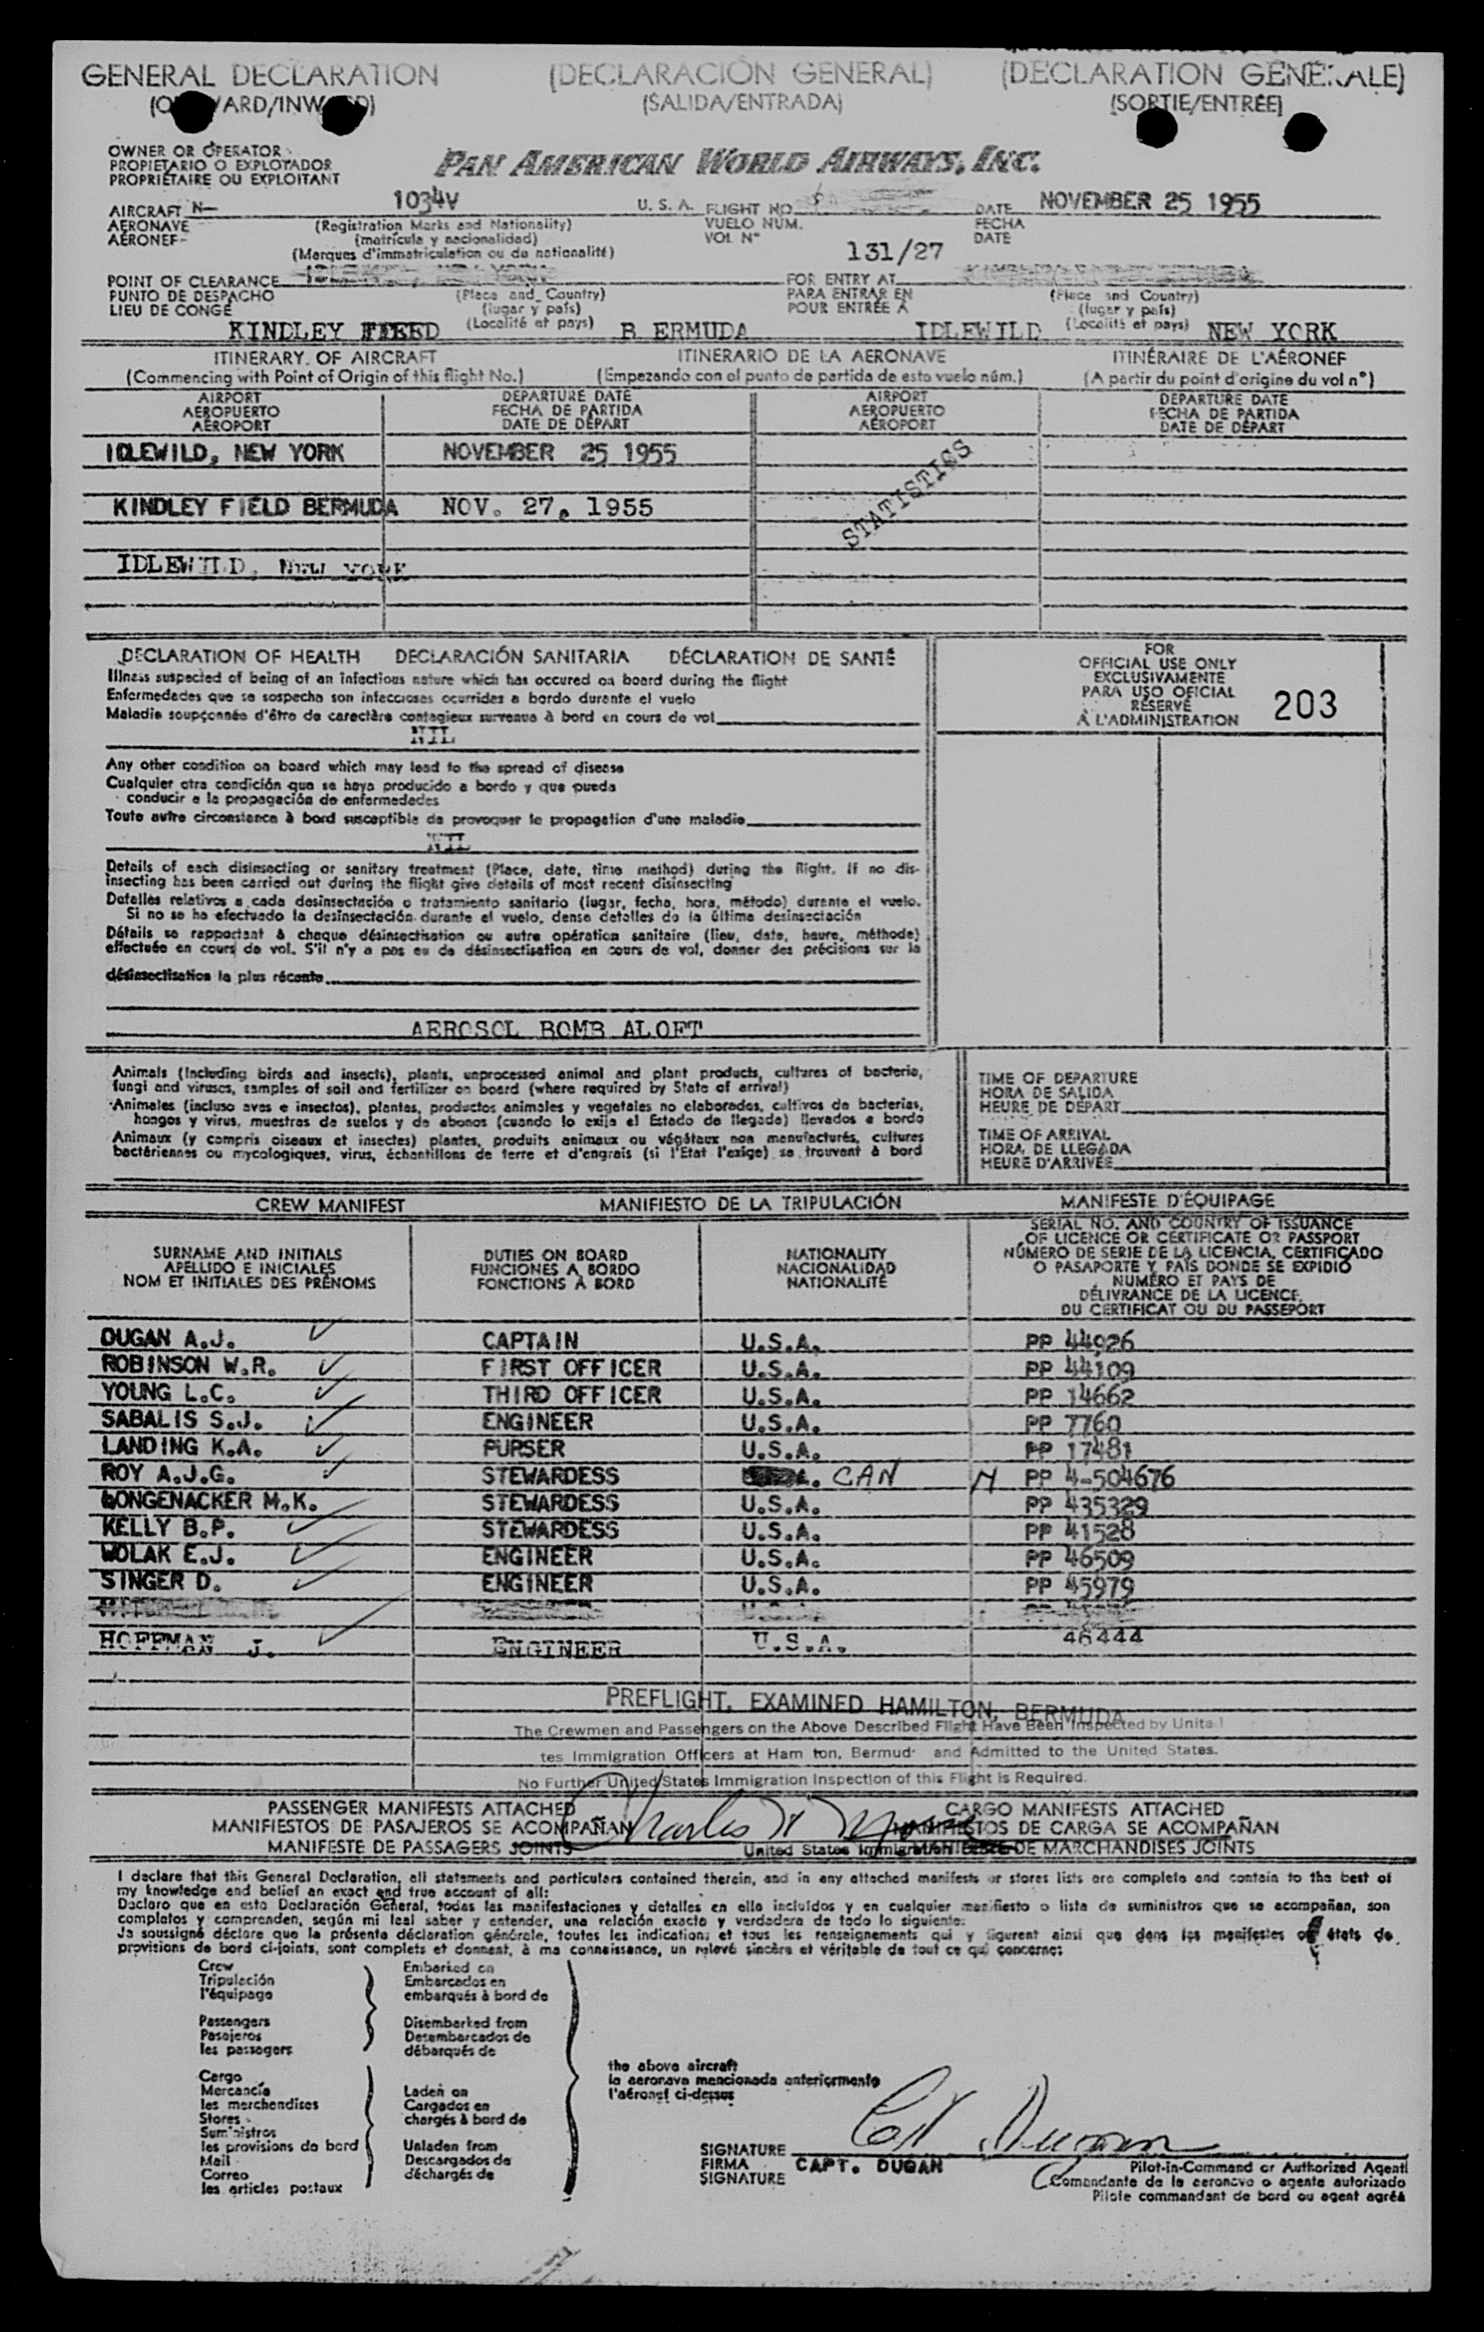 GENERAL DECLARATION (DECLARACIÓN GENERAL) (DECLARATION GENERALE)
(SALIDA/ENTRADA) (SORTIE/ENTRÉE)
OWNER OR OPERATOR
PROPIETARIO O EXPLOTADOR
PROPRIÉTAIRE OU EXPLOITANT
PAN AMERICAN WORLD AIRWAYS, INC.
AIRCRAFT N- 1034V U. S. A. FLIGHT NO. DATE NOVEMBER 25 1955
AERONAVE (Registration Marks and Nationality) VUELO NUM. FECHA
AÉRONEF (matrícula y nacionalidad) VOL N° DATE
(Marques d'immatriculation ou de nationalité) 131/27
POINT OF CLEARANCE FOR ENTRY AT
PUNTO DE DESPACHO (Place and Country) PARA ENTRAR EN (Place and Country)
LIEU DE CONGÉ (lugar y país) POUR ENTRÉE À (lugar y país)
KINDLEY (Localité et pays) BERMUDA IDLEWILD (Localité et pays) NEW YORK
ITINERARY OF AIRCRAFT ITINERARIO DE LA AERONAVE ITINÉRAIRE DE L'AÉRONEF
(Commencing with Point of Origin of this flight No.) (Empezando con el punto de partida de este vuelo núm.) (A partir du point d'origine du vol n°)
AIRPORT DEPARTURE DATE AIRPORT DEPARTURE DATE
AEROPUERTO FECHA DE PARTIDA AEROPUERTO FECHA DE PARTIDA
AÉROPORT DATE DE DÉPART AÉROPORT DATE DE DÉPART
IDLEWILD, NEW YORK NOVEMBER 25 1955
STATISTICS
KINDLEY FIELD BERMUDA NOV. 27, 1955
IDLEWILD, NEW YORK
DECLARATION OF HEALTH DECLARACIÓN SANITARIA DÉCLARATION DE SANTÉ
Illness suspected of being of an infectious nature which has occured on board during the flight
Enfermedades que se sospecha son infecciosas ocurridas a bordo durante el vuelo
Maladie soupçonnée d'être de caractère contagieux survenue à bord en cours de vol
NIL
FOR
OFFICIAL USE ONLY
EXCLUSIVAMENTE
PARA USO OFICIAL
RÉSERVÉ
À L'ADMINISTRATION
203
Any other condition on board which may lead to the spread of disease
Cualquier otra condición que se haya producido a bordo y que pueda
conducir a la propagación de enfermedades
Toute autre circonstance à bord susceptible de provoquer la propagation d'une maladie
NIL
Details of each disinsecting or sanitary treatment (Place, date, time method) during the flight. If no dis-
insecting has been carried out during the flight give details of most recent disinsecting
Detalles relativos a cada desinsectación o tratamiento sanitario (lugar, fecha, hora, método) durante el vuelo.
Si no se ha efectuado la desinsectación durante el vuelo, dense detalles de la última desinsectación
Détails se rapportant à chaque désinsectisation ou autre opération sanitaire (lieu, date, heure, méthode)
effectuée en cours de vol. S'il n'y a pas eu de désinsectisation en cours de vol, donner des précisions sur la
désinsectisation la plus récente
AEROSOL BOMB ALOFT
Animals (Including birds and insects), plants, unprocessed animal and plant products, cultures of bacteria,
fungi and viruses, samples of soil and fertilizer on board (where required by State of arrival)
Animales (incluso aves e insectos), plantas, productos animales y vegetales no elaborados, cultivos de bacterias,
hongos y virus, muestras de suelos y de abonos (cuando lo exija el Estado de llegada) llevados a bordo
Animaux (y compris oiseaux et insectes) plantes, produits animaux ou végétaux non manufacturés, cultures
bactériennes ou mycologiques, virus, échantillons de terre et d'engrais (si l'Etat l'exige) se trouvant à bord
TIME OF DEPARTURE
HORA DE SALIDA
HEURE DE DÉPART
TIME OF ARRIVAL
HORA DE LLEGADA
HEURE D'ARRIVÉE
CREW MANIFEST MANIFIESTO DE LA TRIPULACIÓN MANIFESTE D'ÉQUIPAGE
SURNAME AND INITIALS
APELLIDO E INICIALES
NOM ET INITIALES DES PRÉNOMS
DUTIES ON BOARD
FUNCIONES A BORDO
FONCTIONS À BORD
NATIONALITY
NACIONALIDAD
NATIONALITÉ
SERIAL NO. AND COUNTRY OF ISSUANCE
OF LICENCE OR CERTIFICATE OR PASSPORT
NÚMERO DE SERIE DE LA LICENCIA, CERTIFICADO
O PASAPORTE Y PAÍS DONDE SE EXPIDIÓ
NUMÉRO ET PAYS DE
DÉLIVRANCE DE LA LICENCE,
DU CERTIFICAT OU DU PASSEPORT
DUGAN A.J. CAPTAIN U.S.A. PP 44926
ROBINSON W.R. FIRST OFFICER U.S.A. PP 44109
YOUNG L.C. THIRD OFFICER U.S.A. PP 14662
SABALIS S.J. ENGINEER U.S.A. PP 7760
LANDING K.A. PURSER U.S.A. PP 17481
ROY A.J.G. STEWARDESS CAN PP 4-504676
LONGENACKER M.K. STEWARDESS U.S.A. PP 435329
KELLY B.P. STEWARDESS U.S.A. PP 41528
WOLAK E.J. ENGINEER U.S.A. PP 46509
SINGER D. ENGINEER U.S.A. PP 45979
HOFFMAN J. ENGINEER U.S.A. 46444
PREFLIGHT, EXAMINED HAMILTON, BERMUDA
The Crewmen and Passengers on the Above Described Flight Have Been Inspected by Unite
tes Immigration Officers at Ham ton, Bermud and Admitted to the United States.
No Further United States Immigration Inspection of this Flight Is Required.
PASSENGER MANIFESTS ATTACHED CARGO MANIFESTS ATTACHED
MANIFIESTOS DE PASAJEROS SE ACOMPAÑAN MANIFIESTOS DE CARGA SE ACOMPAÑAN
MANIFESTE DE PASSAGERS JOINTS United States Immigration DE MARCHANDISES JOINTS
I declare that this General Declaration, all statements and particulars contained therein, and in any attached manifests or stores lists are complete and contain to the best of
my knowledge and belief an exact and true account of all:
Declaro que en esta Declaración General, todas las manifestaciones y detalles en ella incluídos y en cualquier manifiesto o lista de suministros que se acompañan, son
completos y comprenden, según mi leal saber y entender, una relación exacta y verdadera de todo lo siguiente:
Je soussigné déclare que la présente déclaration générale, toutes les indications et tous les renseignements qui y figurent ainsi que dans les manifestes ou états de
provisions de bord ci-joints, sont complets et donnent, à ma connaissance, un relevé sincère et véritable de tout ce qui concerne:
Crew Embarked on
Tripulación Embarcados en
l'équipage embarqués à bord de
Passengers Disembarked from
Pasajeros Desembarcados de
les passagers débarqués de
the above aircraft
la aeronave mencionada anteriormente
l'aéronef ci-dessus
Cargo
Mercancía Laden on
les marchandises Cargados en
Stores chargés à bord de
Suministros
les provisions de bord Unladen from
Mail Descargados de
Correo déchargés de
les articles postaux
SIGNATURE
FIRMA CAPT. DUGAN
SIGNATURE
Pilot-in-Command or Authorized Agent
Comandante de la aeronave o agente autorizado
Pilote commandant de bord ou agent agréé